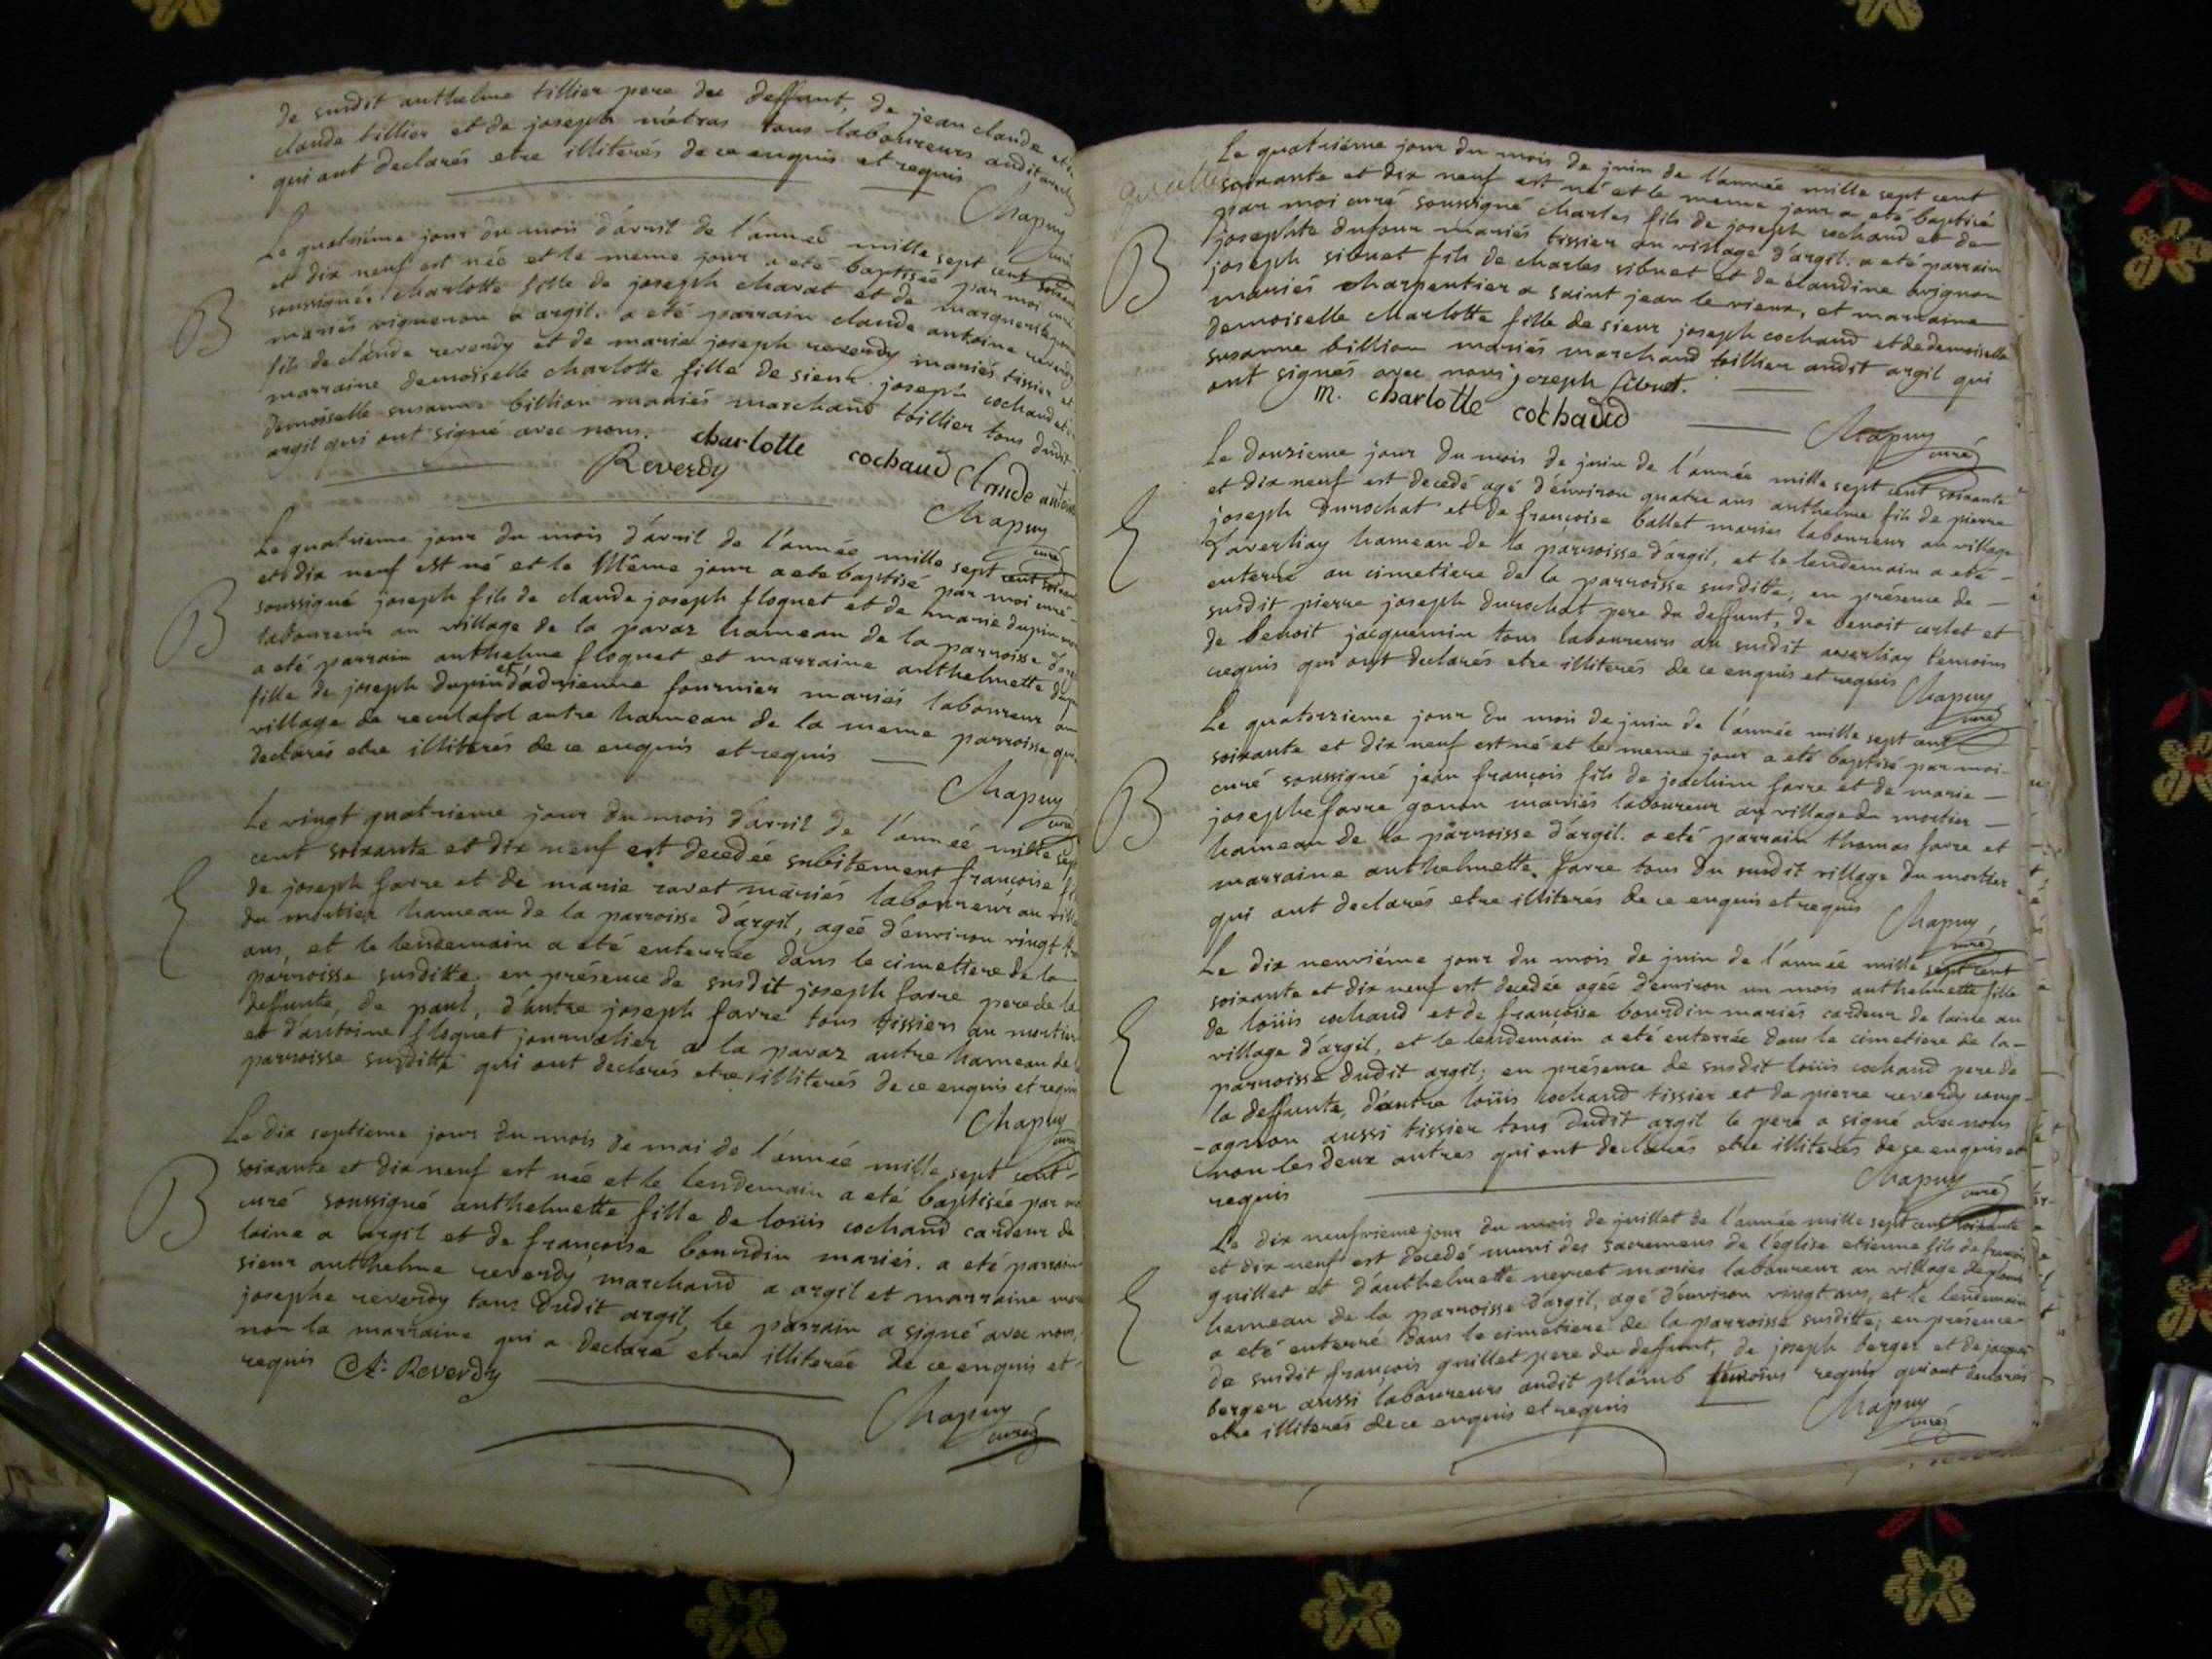 de susdit anthelme tillier pere du deffunt, de jean claude et de
claude tillier et de joseph métras tous laboureurs audit
qui ont declarés etre illiterés de ce enquis et requis
Chapuy
curé
Le quatriéme jour du mois d'avril de l'année mille sept cent soixante
et dix neuf est née et le meme jour a eté baptisée par moi curé
soussigné charlotte fille de joseph charat et de marguerite
mariés vigneron a argil. a eté parrain claude antoine reverdy
fils de claude reverdy et de marie joseph reverdy mariés tissier et
marraine demoiselle charlotte fille de sieur joseph cochaud et de
demoiselle susanne billion mariés marchand toillier tous dudit
argil qui ont signé avec nous. charlotte cochaud Claude antoine
Reverdy
Chapuy
curé
B
Le quatrieme jour du mois d'avril de l'année mille sept cent soixante
et dix neuf est né et le Même jour a eté baptisé par moi curé
soussigné joseph fils de claude joseph floquet et de marie dupin
laboureur au village de la pavaz hameau de la parroisse d'argil
a eté parrain anthelme floquet et marraine anthelmette dupin
fille de joseph dupin et d'adrienne fournier mariés laboureur au
village de reculafol autre hameau de la meme parroisse qui
declarés etre illiterés de ce enquis et requis
Chapuy
curé
B
Le vingt quatrieme jour du mois d'avril de l'année mille sept
cent soixante et dix neuf est decedée subitement françoise fille
de joseph farre et de marie ravet mariés laboureur au village
du mortier hameau de la parroisse d'argil, agée d'environ vingt
ans, et le lendemain a eté enterrée dans le cimettere de la
parroisse susditte, en présence de susdit joseph farre pere de la
deffunte, de paul, d'autre joseph farre tous tissiers au mortier
et d'antoine floquet journalier a la pavaz autre hameau de
parroisse susditte qui ont declarés etre illiterés de ce enquis et requis
Chapuy
curé
Le dix septieme jour du mois de mai de l'année mille sept cent
soixante et dix neuf est née et le lendemain a eté baptisée par moi
curé soussigné anthelmette fille de loüis cochand cardeur de
laine a argil et de françoise bourdin mariés. a eté parrain
sieur anthelme reverdy marchand a argil et marraine
josephe reverdy tous dudit argil, le parrain a signé avec nous,
non la marraine qui a declaré etre illiterée de ce enquis et
requis A: Reverdy
Chapuy
curé
B
Le quatriéme jour du mois de juin de l'année mille sept cent
soixante et dix neuf est né et le meme jour a eté baptisé
par moi curé soussigné charles fils de joseph cochand et de
josephte dufour mariés tissier au village d'argil. a eté parrain
joseph sibuet fils de charles sibuet et de claudine avignon
mariés charpentier a saint jean le vieux, et marraine
demoiselle charlotte fille de sieur joseph cochaud et de demoiselle
susanne billion mariés marchand toillier audit argil qui
ont signés avec nous joseph sibuet.
m. charlotte cochaud
Chapuy
curé
B
Le douzieme jour du mois de juin de l'année mille sept cent soixante
et dix neuf est decedé agé d'environ quatre ans anthelme fils de pierre
joseph durochat et de françoise ballet mariés laboureur au village
d'averliay hameau de la parroisse d'argil, et le lendemain a eté
enterré au cimetiere de la parroisse susditte; en présence de
susdit pierre joseph durochat pere du deffunt, de benoit carlet et
de benoit jacquemin tous laboureurs au susdit averliay témoins
requis qui ont declarés etre illiterés de ce enquis et requis
Chapuy
curé
Le quatorzieme jour du mois de juin de l'année mille sept cent
soixante et dix neuf est né et le meme jour a eté baptisé par moi
curé soussigné jean françois fils de joachim farre et de marie
josephe farre gonon mariés laboureur au village du mortier
hameau de la parroisse d'argil. a eté parrain thomas farre et
marraine anthelmette farre tous du susdit village du mortier
qui ont declarés etre illiterés de ce enquis et requis
Chapuy
curé
B
Le dix neuviéme jour du mois de juin de l'année mille sept cent
soixante et dix neuf est decedée agée d'environ un mois anthelmette fille
de loüis cochand et de françoise bourdin mariés cardeur de laine au
village d'argil, et le lendemain a eté enterrée dans le cimetiere de la
parroisse dudit argil; en présence de susdit loüis cochand pere de
la deffunte, d'autre loüis cochand tissier et de pierre reverdy comp-
-agnon aussi tissier tous dudit argil le pere a signé avec nous
non les deux autres qui ont declarés etre illiterés de ce enquis et
requis
Chapuy
curé
Le dix neufvieme jour du mois de juillet de l'année mille sept cent soixante
et dix neuf est decedé muni des sacremens de l'église etienne fils de françois
guillet et d'anthelmette neyret mariés laboureur au village de plomb
hameau de la parroisse d'argil, agé d'environ vingt ans, et le lendemain
a eté enterré dans le cimetiere de la parroisse susditte; en présence
de susdit françois guillet pere du deffunt, de joseph berger et de jacques
berger aussi laboureurs audit plomb témoins requis qui ont declarés
etre illiterés de ce enquis et requis
Chapuy
curé